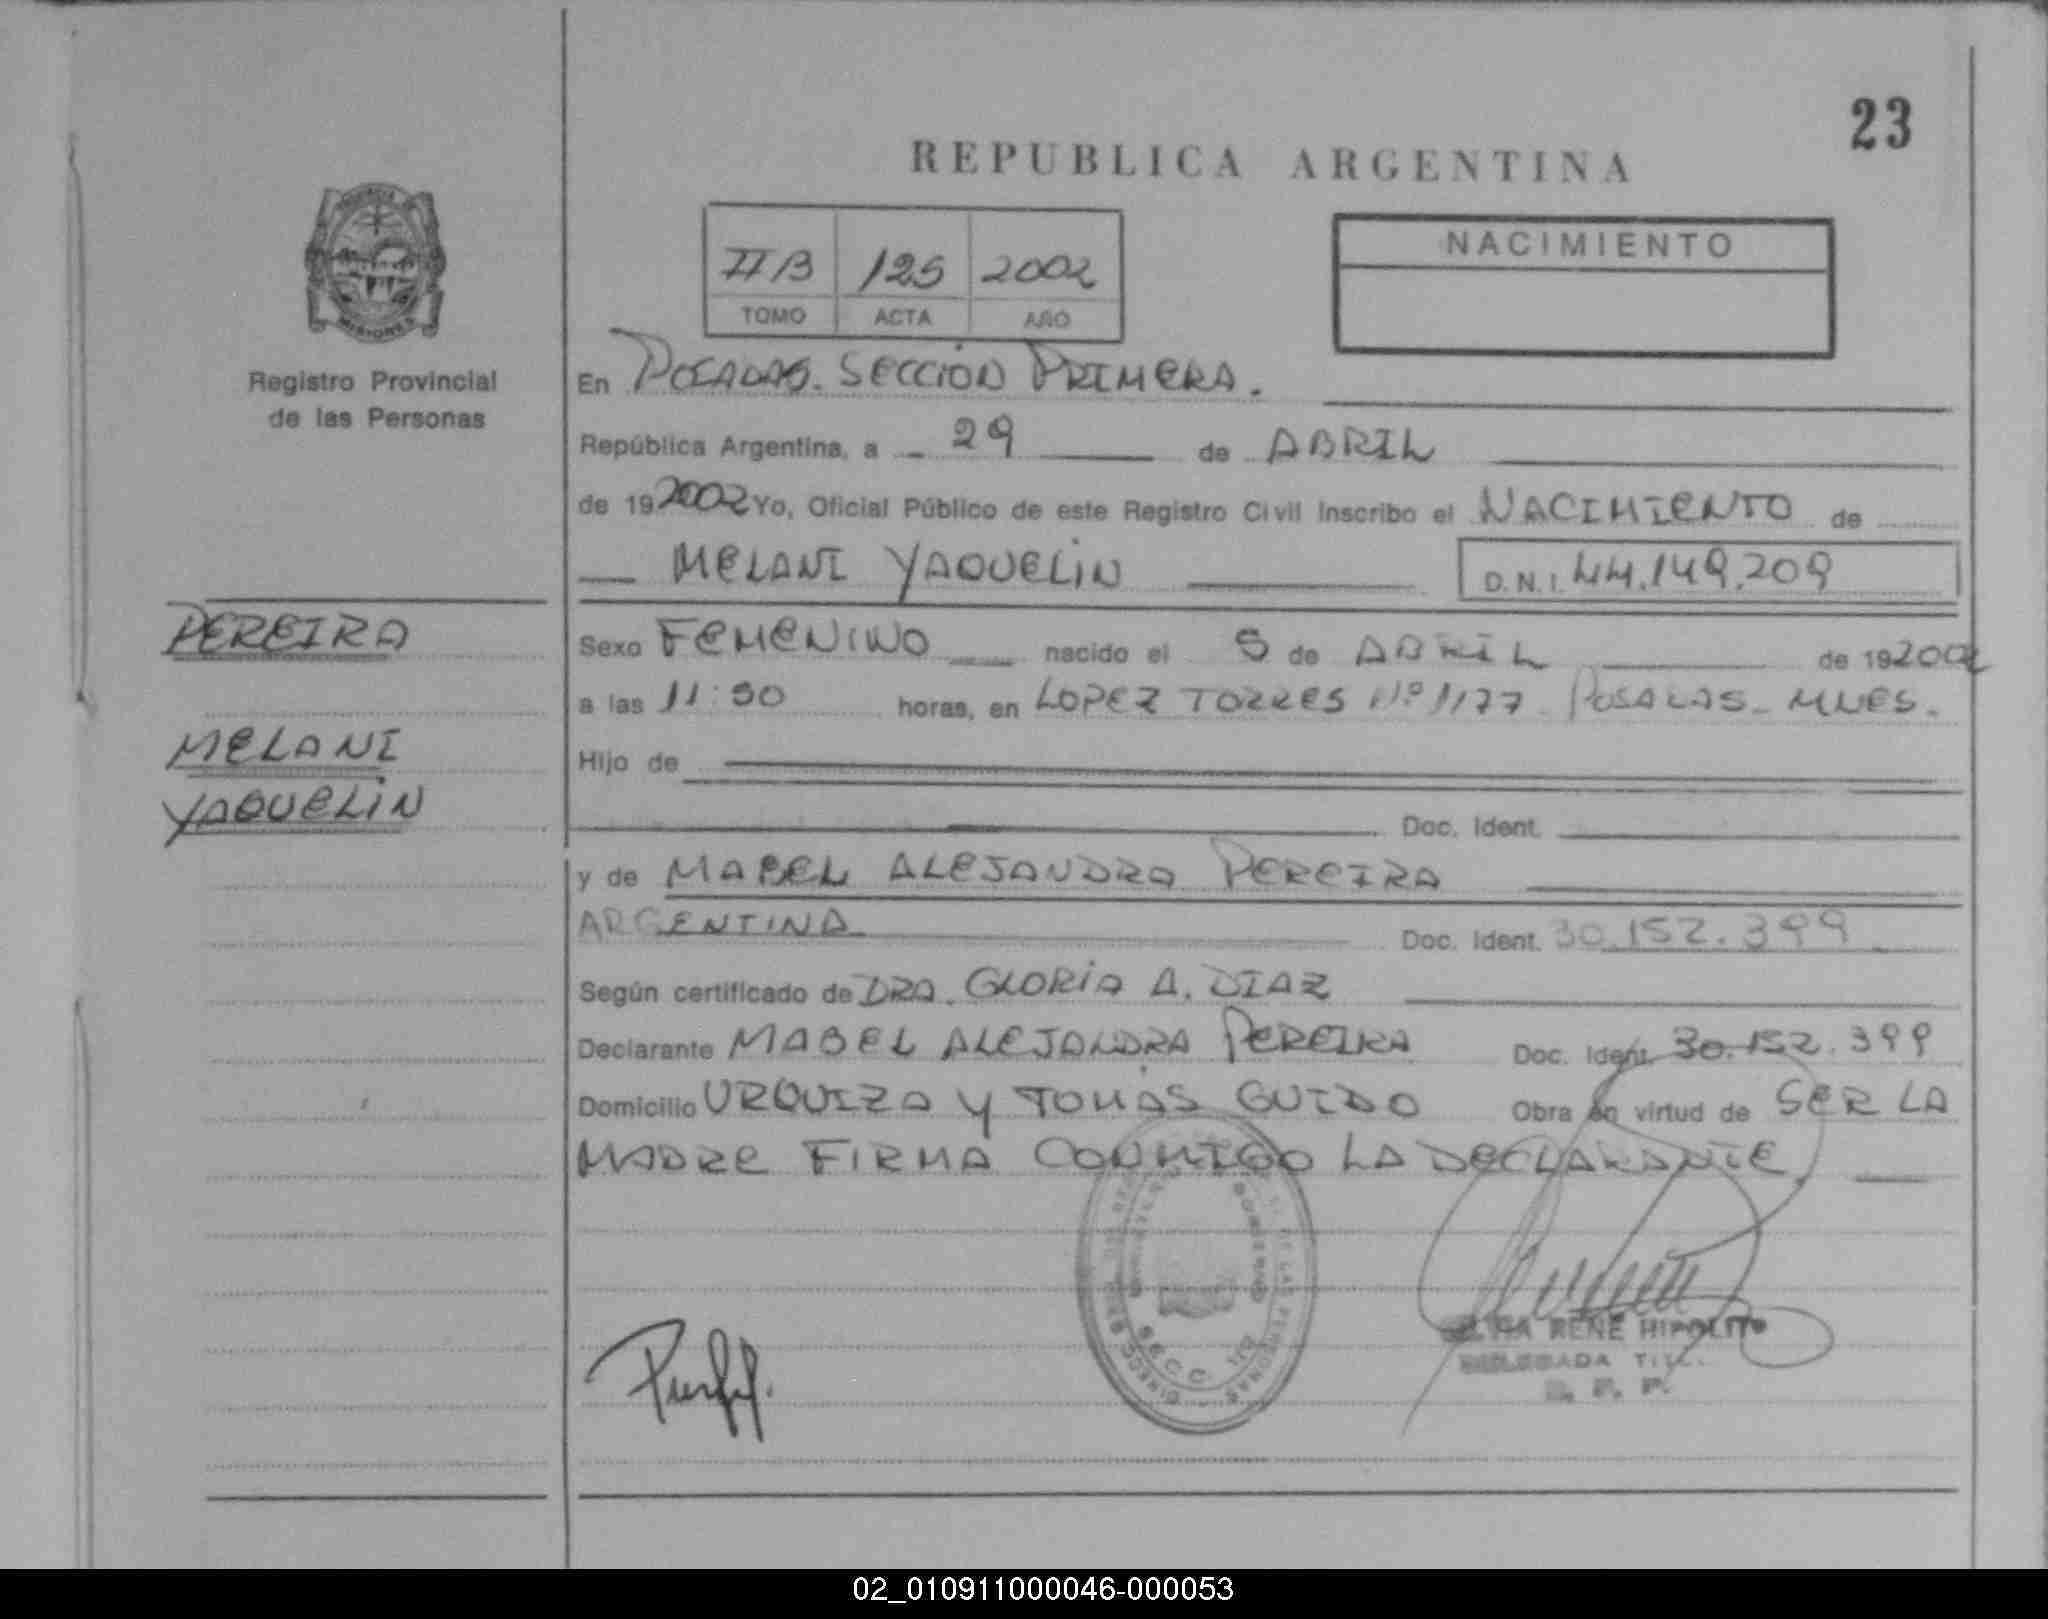 23
REPUBLICA ARGENTINA
II/B 125 2002
TOMO ACTA AÑO
NACIMIENTO
MISIONES
Registro Provincial
de las Personas
En POSADAS. SECCION PRIMERA.
República Argentina, a 29 de ABRIL
de 19 2002 Yo, Oficial Público de este Registro Civil Inscribo el NACIMIENTO de
MELANI YAQUELIN D.N.I. 44.149.209
PEREIRA
MELANI
YAQUELIN
Sexo FEMENINO nacido el 5 de ABRIL de 19 2002
a las 11:50 horas, en LOPEZ TORRES Nº 1177 POSADAS - MNES.
Hijo de
Doc. Ident.
y de MABEL ALEJANDRA PEREIRA
ARGENTINA Doc. Ident. 30.152.399
Según certificado de DRA. GLORIA A. DIAZ
Declarante MABEL ALEJANDRA PEREIRA Doc. Ident. 30.152.399
Domicilio URQUIZA Y TOMÁS GUIDO Obra en virtud de SER LA
MADRE FIRMA CONMIGO LA DECLARANTE
SECC.
RENE HIPOLITO
DELEGADA TIT.
R. P. P.
02_010911000046-000053